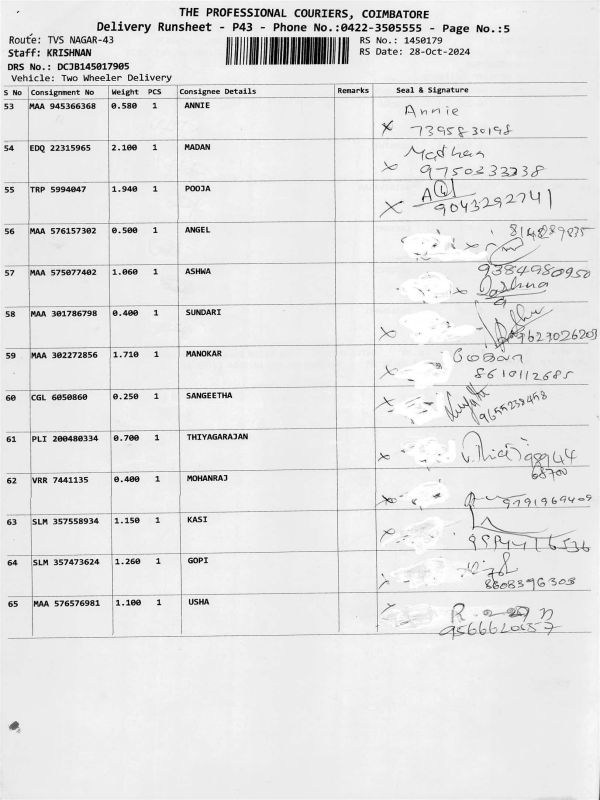 THE PROFESSIONAL COURIERS, COIMBATORE
Delivery Runsheet - P43 - Phone No.:0422-3505555 - Page No.:5
Route: TVS NAGAR-43 RS No.: 1450179
Staff: KRISHNAN RS Date: 28-Oct-2024
DRS No.: DCJB145017905
Vehicle: Two Wheeler Delivery
S No Consignment No Weight PCS Consignee Details Remarks Seal & Signature
53 MAA 945366368 0.580 1 ANNIE Annie
x 7395830198
54 EDQ 22315965 2.100 1 MADAN Mathan
x 9750333238
55 TRP 5994047 1.940 1 POOJA
x 9043292741
56 MAA 576157302 0.500 1 ANGEL 8148289835
x
57 MAA 575077402 1.060 1 ASHWA 9384980950
x
58 MAA 301786798 0.400 1 SUNDARI
x 9629026209
59 MAA 302272856 1.710 1 MANOKAR
x 8610112685
60 CGL 6050860 0.250 1 SANGEETHA
x 9655238458
61 PLI 200480334 0.700 1 THIYAGARAJAN
x 98944
68700
62 VRR 7441135 0.400 1 MOHANRAJ
x 9791969409
63 SLM 357558934 1.150 1 KASI
x
64 SLM 357473624 1.260 1 GOPI
x 8608396303
65 MAA 576576981 1.100 1 USHA
x 9566620157